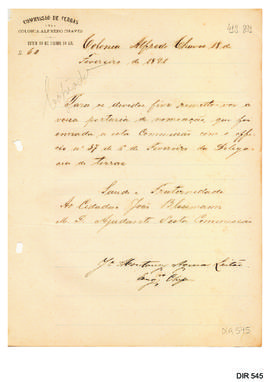 COMMISSÃO DE TERRAS
COLONIA ALFREDO CHAVES
Nº 60
Colonia Alfredo Chaves 18 de
Fevereiro de 1891
Para os devidos fins remetto-vos a
vossa portaria de nomeação, que foi
enviada a esta Commissão com o offi-
cio nº 37 de 6 de Fevereiro da Delega-
cia de terras.
Saude e Fraternidade
Ao Cidadão José Bleumann
M. D. Ajudante desta Commissão
Engº Chefe
DIR 545
DIR 545